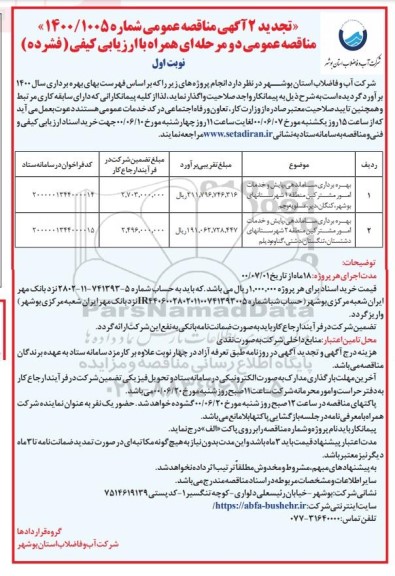 «تجدید ۲ آگهی مناقصه عمومی شماره ۱۴۰۰/۱۰۰۵»
مناقصه عمومی دو مرحله ای همراه با ارزیابی کیفی (فشرده)
نوبت اول
شرکت آب و فاضلاب استان بوشهر
شرکت آب و فاضلاب استان بوشهر در نظر دارد انجام پروژه های زیر را که بر اساس فهرست بهای بهره برداری سال ۱۴۰۰
برآورد گردیده است به شرح ذیل به پیمانکار واجد صلاحیت واگذار نماید، لذا از کلیه پیمانکارانی که دارای سابقه کاری مرتبط
و همچنین تایید صلاحیت معتبر صادره از وزارت کار، تعاون و رفاه اجتماعی در کد خدمات عمومی هستند دعوت بعمل می آید
که از ساعت ۱۵ روز یکشنبه مورخ ۰۰/۰۶/۰۷ لغایت ساعت ۱۱ روز چهارشنبه مورخ ۰۰/۰۶/۱۰ جهت خرید اسناد ارزیابی کیفی و
فنی و مناقصه به سامانه ستاد به نشانی www.setadiran.ir مراجعه نمایند.
ردیف موضوع مبلغ تقریبی برآورد مبلغ تضمین شرکت در فرآیند ارجاع کار کد فراخوان در سامانه ستاد
۱ بهره برداری، ساماندهی، پایش و خدمات امور مشترکین منطقه ۱ شهرستانهای بوشهر، کنگان، دیر، عسلویه و جم ۲۱۱,۷۹۶,۷۴۶,۳۱۶ ریال ۲,۷۰۳,۰۰۰,۰۰۰ ۲۰۰۰۰۰۱۳۴۴۰۰۰۰۱۴
۲ بهره برداری، ساماندهی، پایش و خدمات امور مشترکین منطقه ۲ شهرستانهای دشتستان، تنگستان، دشتی، گناوه و دیلم ۱۹۱,۰۶۲,۷۲۸,۴۴۷ ریال ۲,۴۹۶,۰۰۰,۰۰۰ ۲۰۰۰۰۰۱۳۴۴۰۰۰۰۱۵
توضیحات:
مدت اجرای هر پروژه: ۱۸ ماه از تاریخ ۰۰/۰۷/۰۱
قیمت خرید اسناد برای هر پروژه ۱,۰۰۰,۰۰۰ ریال می باشد. که باید به حساب شماره ۵-۷۴۱۳۹۳-۱۱-۲۸۰۲ نزد بانک مهر
ایران شعبه مرکزی بوشهر (حساب شبا شماره نزد بانک مهر ایران شعبه مرکزی بوشهر)
واریز گردد.
تضمین شرکت در فرآیند ارجاع کار باید به صورت ضمانت نامه بانکی به نفع این شرکت ارائه گردد.
محل تامین اعتبار: منابع داخلی شرکت به صورت نقدی
هزینه درج آگهی و تجدید آگهی در روزنامه طبق تعرفه آزاد در چهار نوبت علاوه بر کارمزد سامانه ستاد به عهده برندگان
مناقصه می باشد.
آخرین مهلت بارگذاری مدارک به صورت الکترونیکی در سامانه ستاد و تحویل فیزیکی تضمین شرکت در فرآیند ارجاع کار
به دفتر حراست و امور محرمانه شرکت ساعت ۱۱ صبح روز شنبه مورخ ۰۰/۰۶/۲۰ می باشد.
پاکتهای مناقصه در ساعت ۱۲ صبح روز شنبه مورخ ۰۰/۰۶/۲۰ گشوده خواهد شد. حضور یک نفر به عنوان نماینده شرکت
همراه با معرفی نامه در جلسه بازگشایی پاکتها بلامانع می باشد.
پیمانکار باید نام پروژه و شماره مناقصه را بر روی پاکت «الف» درج نماید.
مدت اعتبار پیشنهاد قیمت باید ۳ ماه باشد و این مدت بدون نیاز به هیچ گونه مکاتبه ای در صورت تمدید ضمانت نامه تا ۳ ماه
دیگر نیز معتبر باشد.
به پیشنهادهای مبهم، مشروط و مخدوش مطلقاً ترتیب اثر داده نخواهد شد.
سایر اطلاعات و مشخصات مربوطه در اسناد مناقصه مندرج می باشد.
نشانی شرکت: بوشهر - خیابان رئیسعلی دلواری - کوچه تنگسیر ۱ - کدپستی ۷۵۱۴۶۱۹۱۳۹
سایت اینترنتی شرکت: https://abfa-bushehr.ir/
تلفن تماس: ۳۱۶۴۰۰۰۰-۰۷۷
گروه قراردادها
شرکت آب و فاضلاب استان بوشهر
ParsNamadData